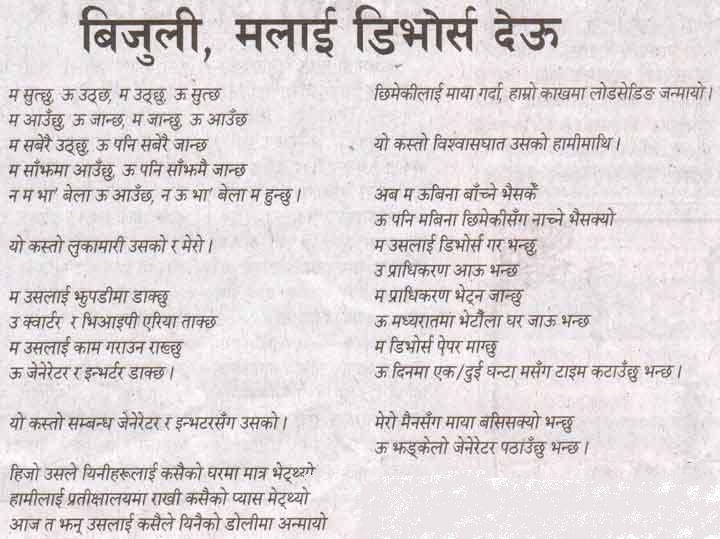 बिजुली, मलाई डिभोर्स देऊ
म सुत्छु, ऊ उठ्छ, म उठ्छु, ऊ सुत्छ
म आउँछु, ऊ जान्छ, म जान्छु, ऊ आउँछ
म सबेरै उठ्छु, ऊ पनि सबेरै जान्छ
म साँझमा आउँछु, ऊ पनि साँझमै जान्छ
न म भा' बेला ऊ आउँछ, न ऊ भा' बेला म हुन्छु ।
यो कस्तो लुकामारी उसको र मेरो ।
म उसलाई झुपडीमा डाक्छु
उ क्वार्टर र भिआइपी एरिया ताक्छ
म उसलाई काम गराउन राख्छु
ऊ जेनेरेटर र इन्भर्टर डाक्छ ।
यो कस्तो सम्बन्ध जेनेरेटर र इन्भटरसँग उसको ।
हिजो उसले यिनीहरूलाई कसैको घरमा मात्र भेट्थ्यो
हामीलाई प्रतीक्षालयमा राखी कसैको प्यास मेट्थ्यो
आज त झन् उसलाई कसैले यिनैको डोलीमा अन्मायो
छिमेकीलाई माया गर्दा, हाम्रो काखमा लोडसेडिङ जन्मायो ।
यो कस्तो विश्वासघात उसको हामीमाथि ।
अब म ऊबिना बाँच्ने भैसकेँ
ऊ पनि मबिना छिमेकीसँग नाच्ने भैसक्यो
म उसलाई डिभोर्स गर भन्छु
उ प्राधिकरण आऊ भन्छ
म प्राधिकरण भेट्न जान्छु
ऊ मध्यरातमा भेटौँला घर जाऊ भन्छ
म डिभोर्स पेपर माग्छु
ऊ दिनमा एक/दुई घन्टा मसँग टाइम कटाउँछु भन्छ ।
मेरो मैनसँग माया बसिसक्यो भन्छु
ऊ झड्केलो जेनेरेटर पठाउँछु भन्छ ।